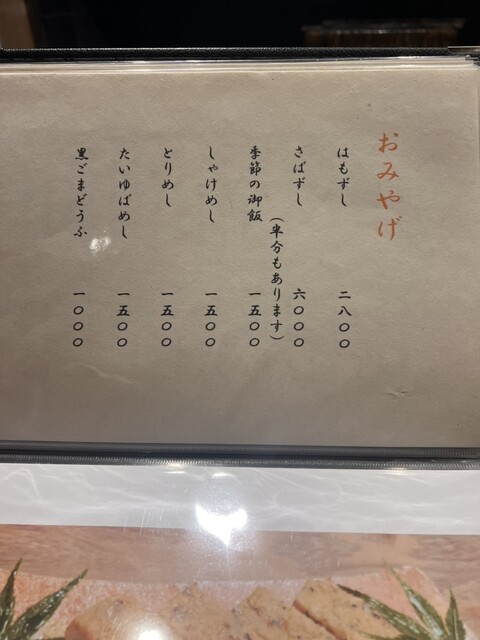 おみやげ
はもずし 二八〇〇
さばずし 六〇〇〇
(半分もあります)
季節の御飯 一五〇〇
しゃけめし 一五〇〇
とりめし 一五〇〇
たいゆばめし 一五〇〇
黒ごまどうふ 一〇〇〇